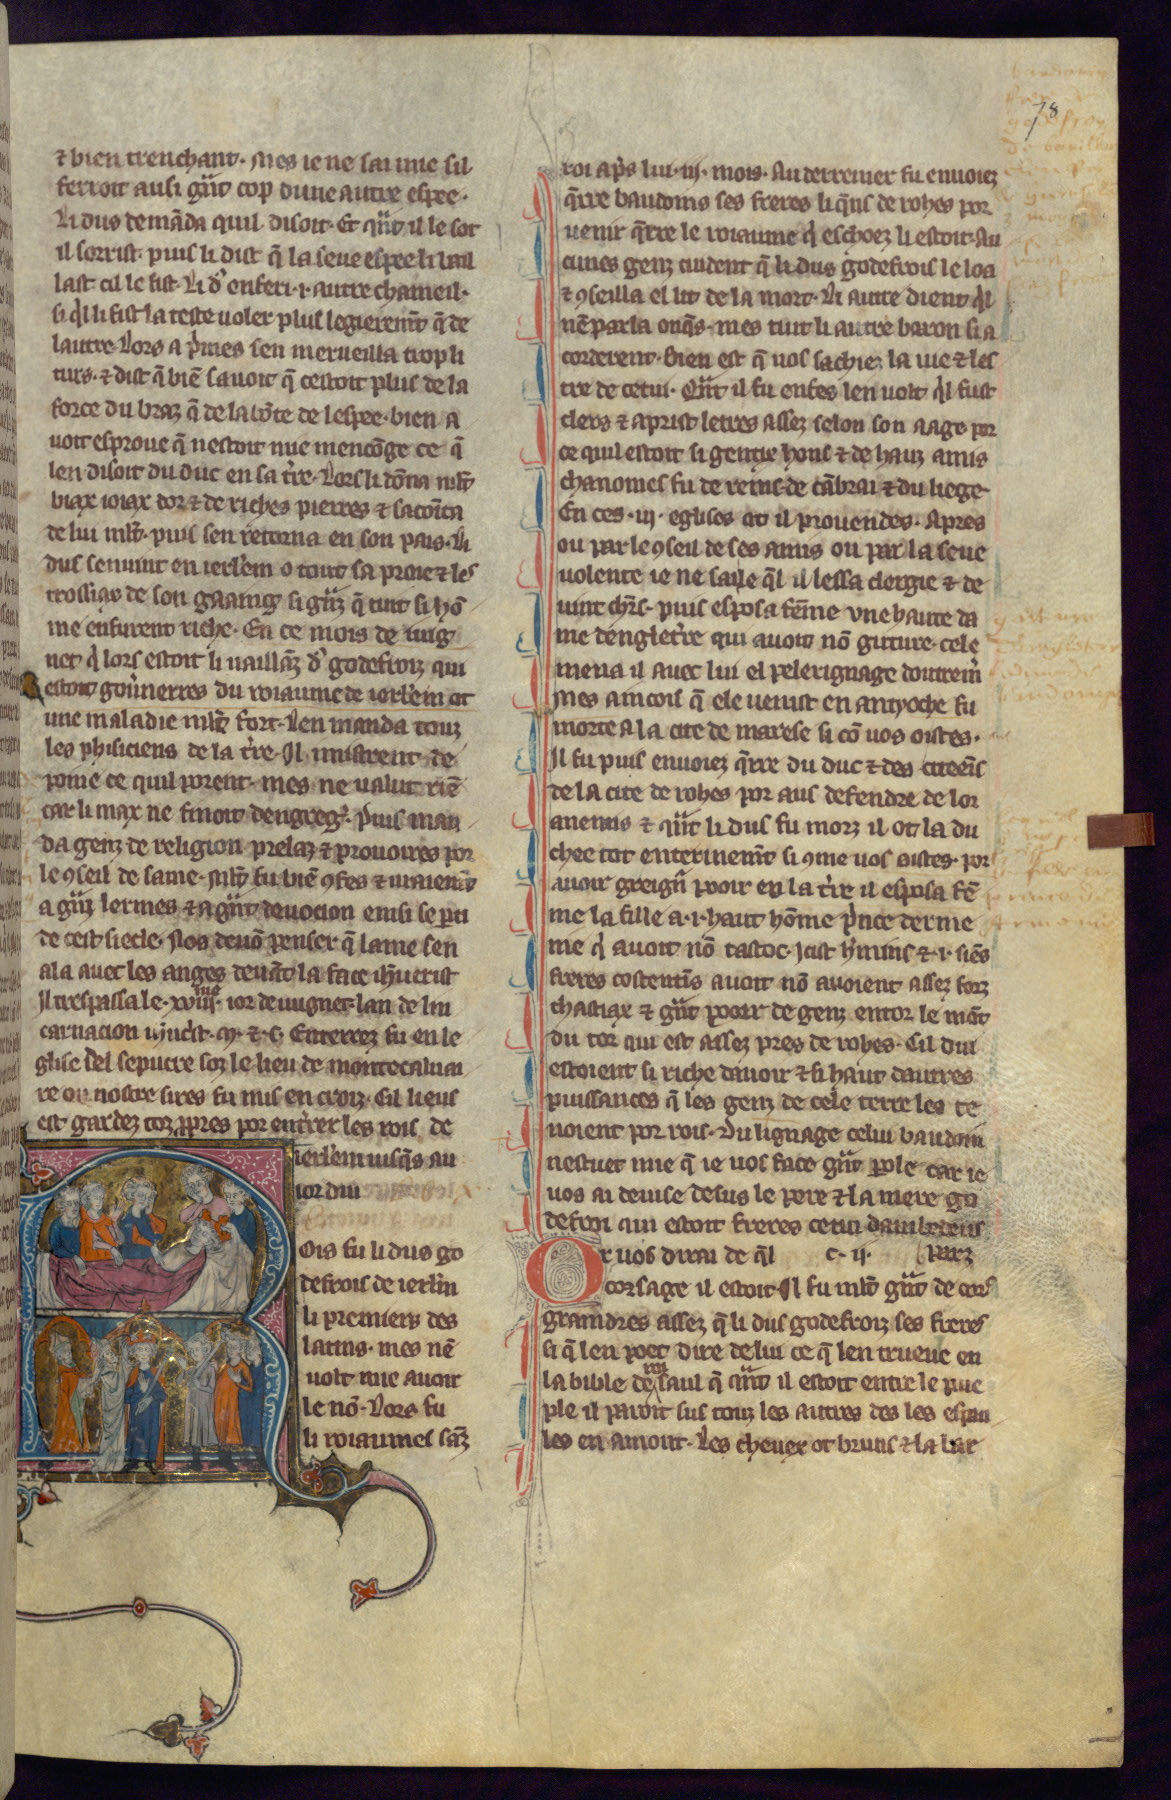 ⁊ bien trenchant. Mes ie ne sai mie sil
ferroit ausi gᵃnt cop dune autre espee.
Li dus demāda quil disoit. Et qᵃnt il le sot
il sorrist. puis li dist q̄ la seue espee li bail
last cil le fist. Li dˢ enferi .i. autre chameil.
si qͥl li fist la teste uoler plus legieremt̄ q̄ de
lautre. Lors a pͥmes sen merueilla trop li
turs. ⁊ dist q̄ biē sauoit q̄ cestoit plus de la
force du braz q̄ de la bōte de lespee. bien a
uoit esproue q̄ nestoit mie mencōge ce q̄
len disoit du duc en sa tr̄e. Lors li dōna mlt̄
biax ioiax dor ⁊ de riches pierres ⁊ sacoīta
de lui mlt̄. puis sen retorna en son pais. Li
dus senuint en ierl'em o tout sa proie ⁊ les
trossiax de son gaaing si gᵃnz q̄ tuit si hō
me enfurent riche. En ce mois de iuig
net qͥ lors estoit li uaillāz dˢ godefroiz qui
estoit gou̾nerres du roiaume de ierl'em ot
une maladie mlt̄ fort. Len manda touz
les phisiciens de la tr̄e. Il mistrent de
poine ce quil porent. mes ne ualut riē
car li max ne finoit dengregͥer. Puis man
da genz de religion prelaz ⁊ prouoires por
le ꝯseil de same. Mlt̄ fu biē ꝯfes ⁊ uraiemt̄
a gᵃnz lermes ⁊ a gᵃnt deuocion einsi se pͣti
de cest siecle. Nos deuō penser q̄ lame sen
ala auec les anges deuāt la face ih̄u crist
Il trespassa le .xviii.ᵐᵉ ior de iuignet. lan de lin
carnacion ih̄ucrist .M. ⁊ .C. Enterrez fu en le
glise del sepucre soz le lieu de montecaluai
re ou nostre sires fu mis en croiz. Cil lieus
est gardez toz ꝓpres por ent̾rer les rois de
ierl'em iusq̄s au
ior dui
Ois fu li dus go
defrois de ierl'm
li premiers des
latins. mes nē
uolt mie auoir
le nō. Lors fu
li roiaumes sāz
78
roi apˢs lui .iii. mois. Au derrenier fu enuoiez
q̄rre baudoins ses freres li qͥens de rohes por
uenir q̄rre le roiaume qͥ eschoez li estoit. Au
cunes genz cuident q̄ li dus godefrois le loa
⁊ ꝯseilla el lit de la mort. Li autre dient qͥl
nē parla onq̄s. mes tuit li autre baron si a
corderent. Bien est q̄ uos sachiez la uie ⁊ les
tre de cetui. Qᵃnt il fu enfes len uolt qͥl fust
clers ⁊ aprist letres assez selon son aage por
ce quil estoit si gentix hons ⁊ de hauz amis
chanoines fu de reins. de cābrai ⁊ du liege.
En ces .iii. eglises ot il prouendes. Apres
ou par le ꝯseil de ses amis ou par la seue
uolente ie ne sai le q̄l il lessa clergie ⁊ de
uint chrˢ. puis esposa fēme une haute da
me dengletr̄e qui auoit nō guture. cele
mena il auec lui el pelerignage doutrem̄
mes aincois q̄ ele uenist en antyoche fu
morte a la cite de marese si cō uos oistes.
Il fu puis enuoiez q̄rre du duc ⁊ des citeēs
de la cite de rohes por aus defendre de lor
anemis ⁊ qᵃnt li dus fu morz il ot la du
chee tot enterinemt̄ si ꝯme uos oistes. por
auoir greignͥ pooir en la tr̄re il esposa fē
me la fille a .i. haut hōme pͥnce dermie
nie qͥ auoit nō tastoc. Icist h̾mins ⁊ .i. siēs
freres costentīs auoit nō auoient assez forz
chastiax ⁊ gᵃnt pooir de genz entor le mōt
du tor qui est assez pres de rohes. Cil dui
estoient si riche dauoir ⁊ si haut dautres
puissances q̄ les genz de cele terre les te
noient por rois. Du lignage celui baudoin
nestuet mie q̄ ie uos face gᵃnt ꝑole car ie
uos ai deuise desus le pere ⁊ la mere go
defroi qui estoit freres cetui dambeteus
Or uos dirai de q̄l c. ii. parz
corsage il estoit. Il fu mlt̄ gᵃnt de cors
graindres assez q̄ li dus godefroiz ses freres
si q̄ len poet dire de lui ce q̄ len trueue en
la bible de roi saul q̄ qᵃnt il estoit entre le pue
ple il paroit sus touz les autres des les espau
les en amont. Les cheuex ot bruns ⁊ la bar